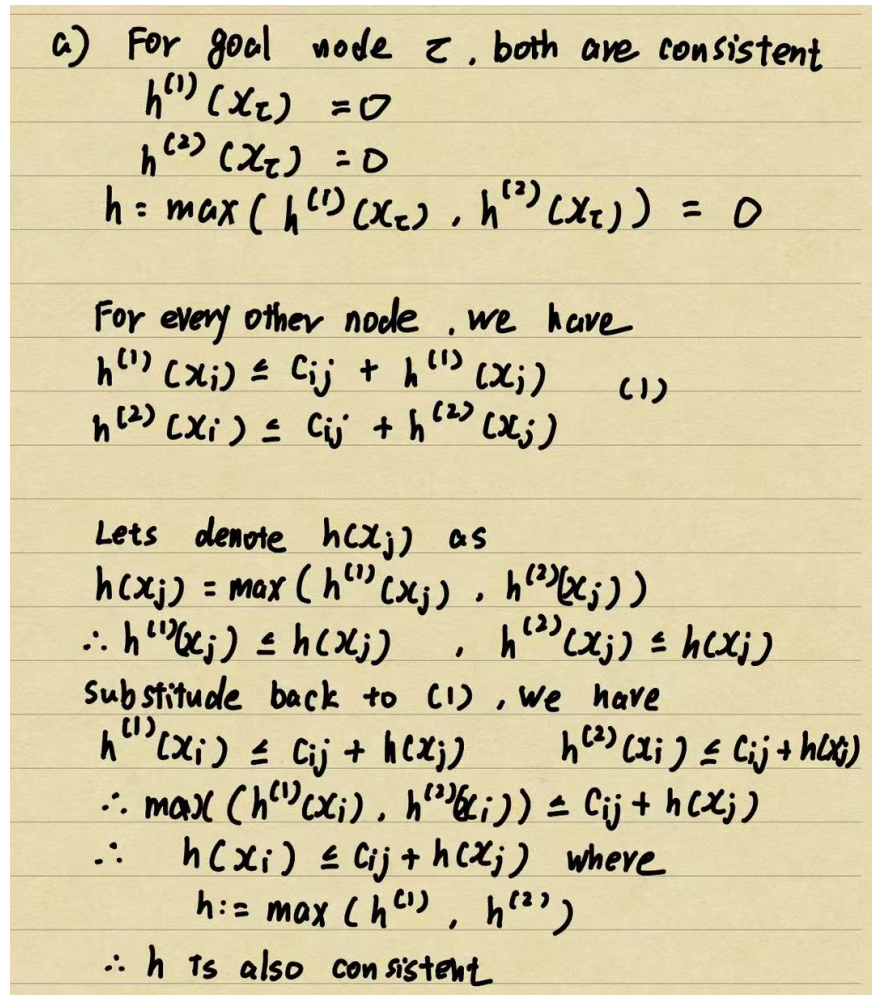 a) For goal node τ, both are consistent
h⁽¹⁾(x_τ) = 0
h⁽²⁾(x_τ) = 0
h = max(h⁽¹⁾(x_τ), h⁽²⁾(x_τ)) = 0
For every other node, we have
h⁽¹⁾(x_i) ≤ c_ij + h⁽¹⁾(x_j) (1)
h⁽²⁾(x_i) ≤ c_ij + h⁽²⁾(x_j)
Lets denote h(x_j) as
h(x_j) = max(h⁽¹⁾(x_j), h⁽²⁾(x_j))
∴ h⁽¹⁾(x_j) ≤ h(x_j) , h⁽²⁾(x_j) ≤ h(x_j)
Substitude back to (1), we have
h⁽¹⁾(x_i) ≤ c_ij + h(x_j) h⁽²⁾(x_i) ≤ c_ij + h(x_j)
∴ max(h⁽¹⁾(x_i), h⁽²⁾(x_i)) ≤ c_ij + h(x_j)
∴ h(x_i) ≤ c_ij + h(x_j) where
h := max(h⁽¹⁾, h⁽²⁾)
∴ h is also consistent